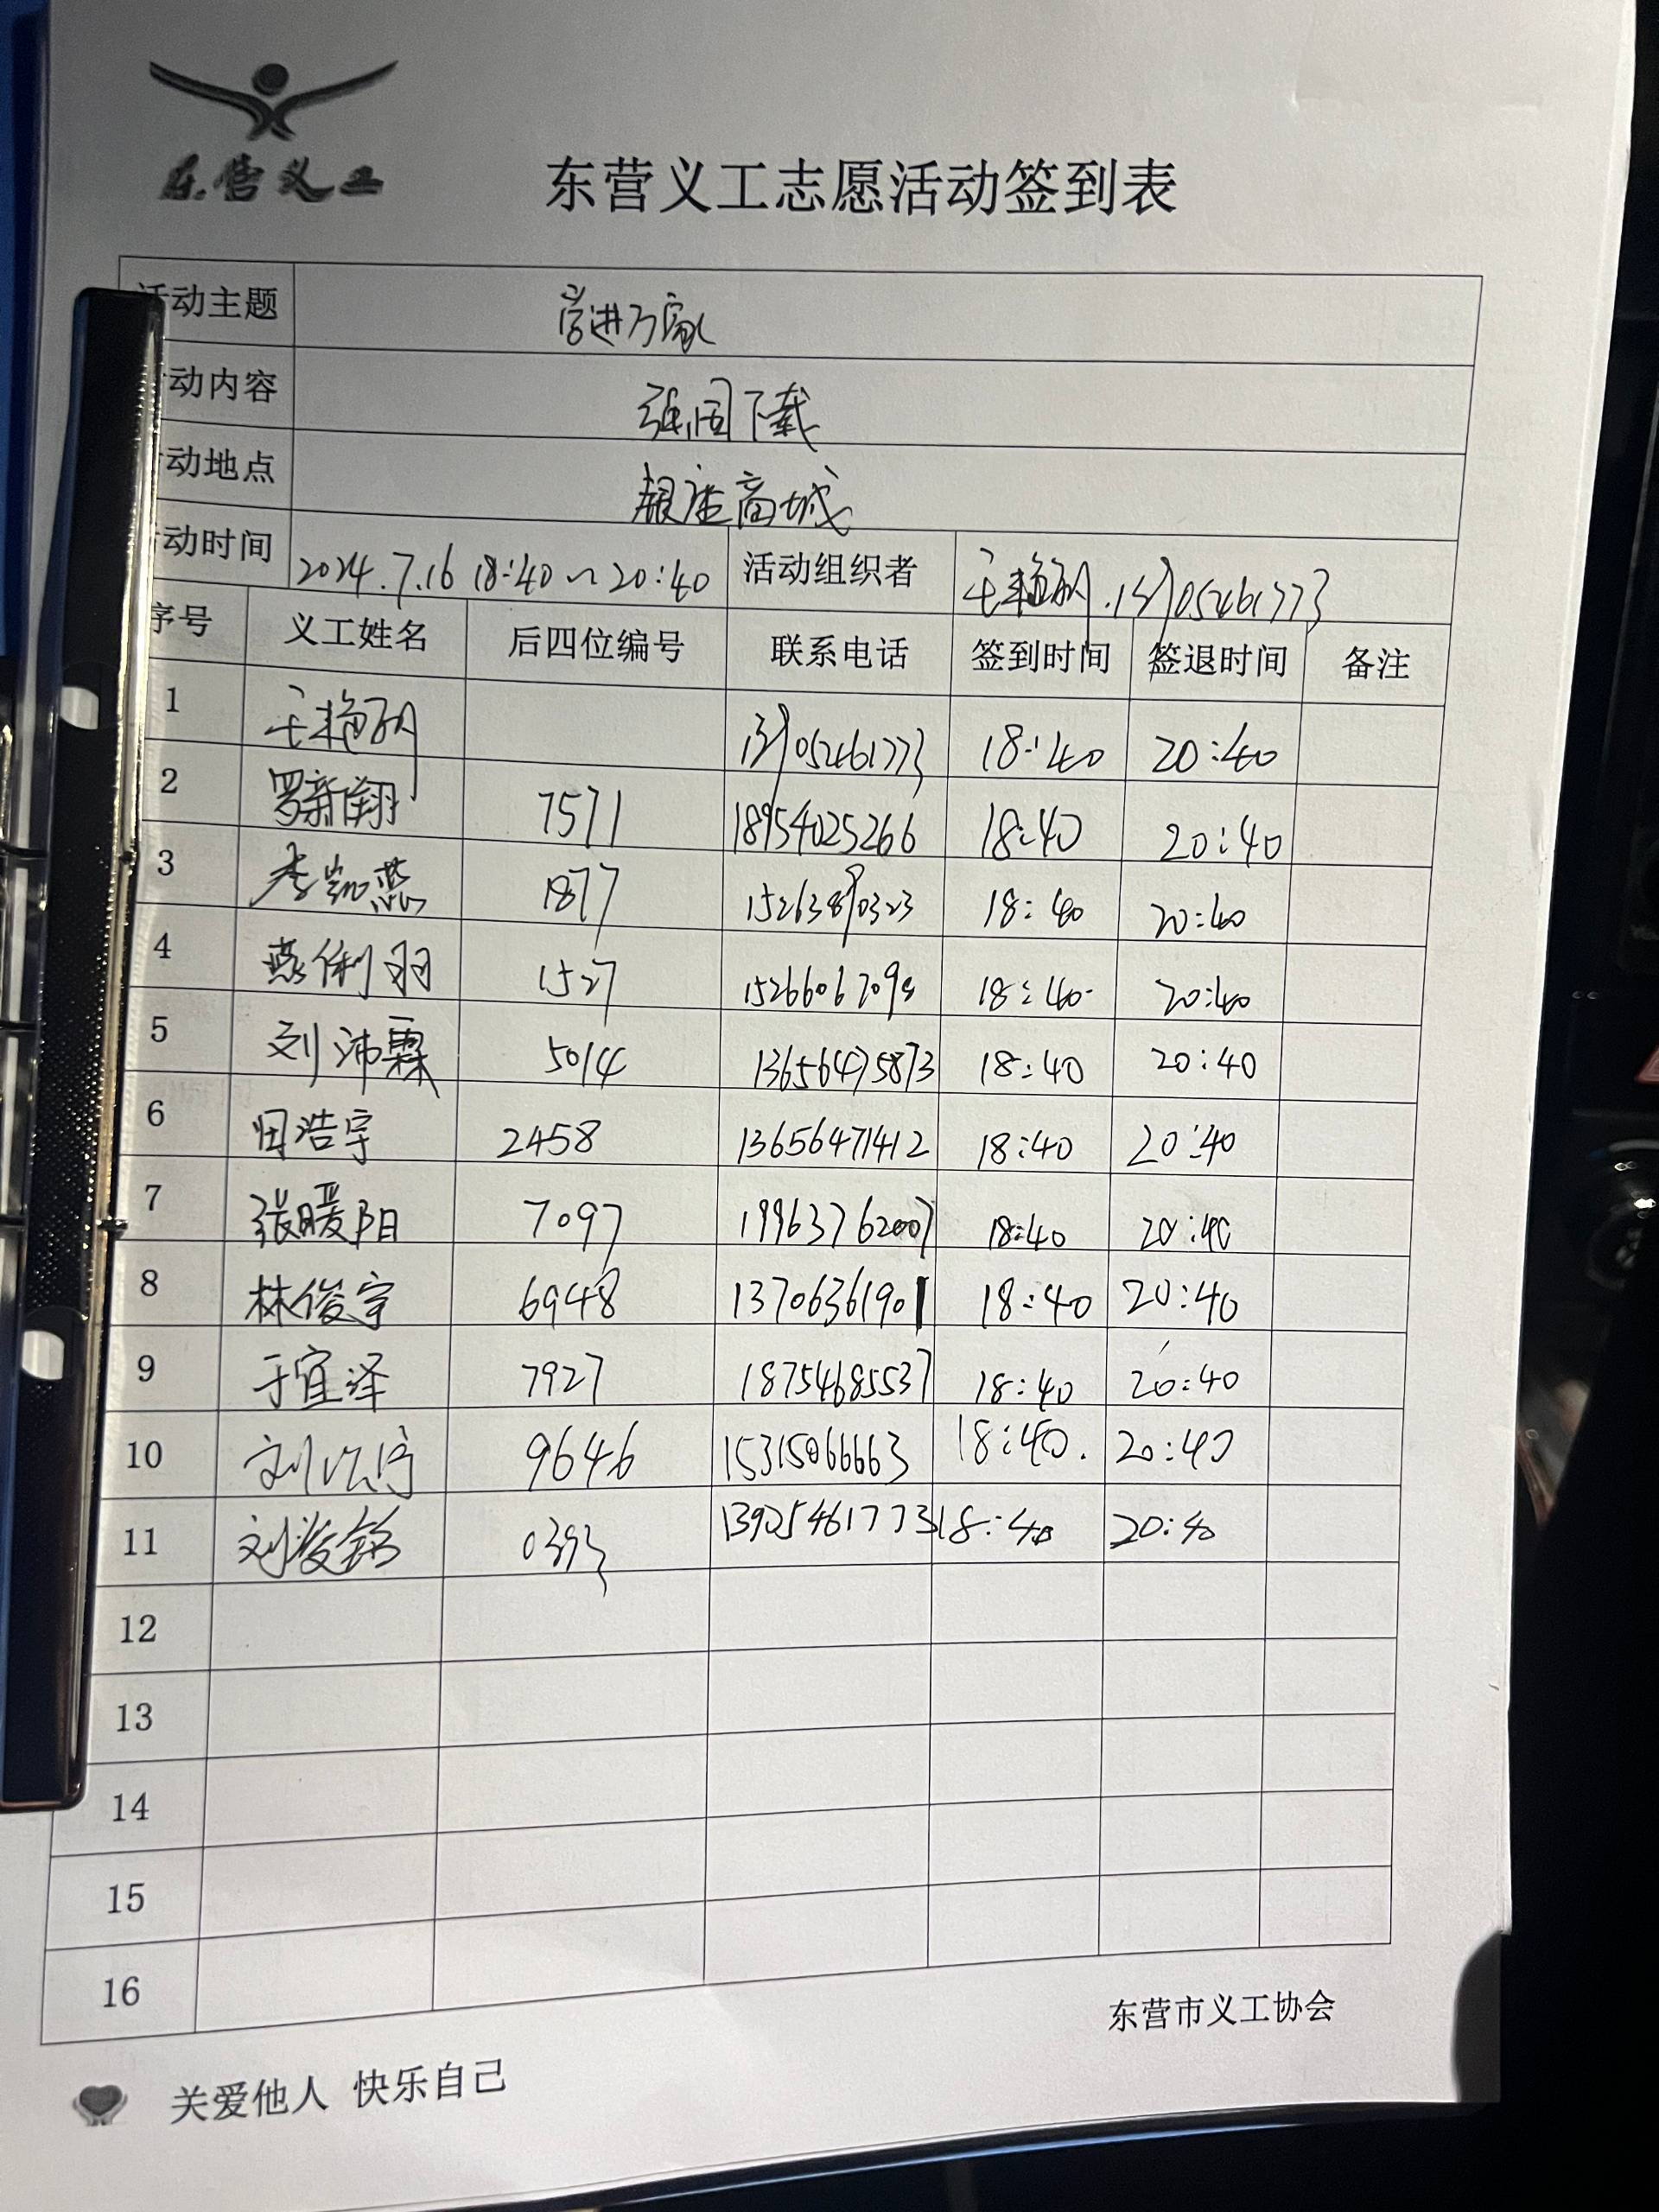 东营义工
东营义工志愿活动签到表
活动主题 学进万家
动内容 强国下载
动地点 银座商城
动时间 2024.7.16 18:40~20:40 活动组织者 王艳丽.13705461773
序号 义工姓名 后四位编号 联系电话 签到时间 签退时间 备注
1 王艳丽 13705461773 18:40 20:40
2 罗新翔 7571 18954025266 18:40 20:40
3 李凯燕 1877 15263890323 18:40 20:40
4 燕俐羽 1527 15266067098 18:40 20:40
5 刘沛霖 5014 13656475873 18:40 20:40
6 田浩宇 2458 13656471412 18:40 20:40
7 张暖阳 7097 19963762007 18:40 20:40
8 林俊宇 6948 13706361901 18:40 20:40
9 于宜泽 7927 18754685537 18:40 20:40
10 刘 9646 15315066663 18:40. 20:40
11 刘 0393 13925461773 18:40 20:40
12
13
14
15
16
东营市义工协会
关爱他人 快乐自己